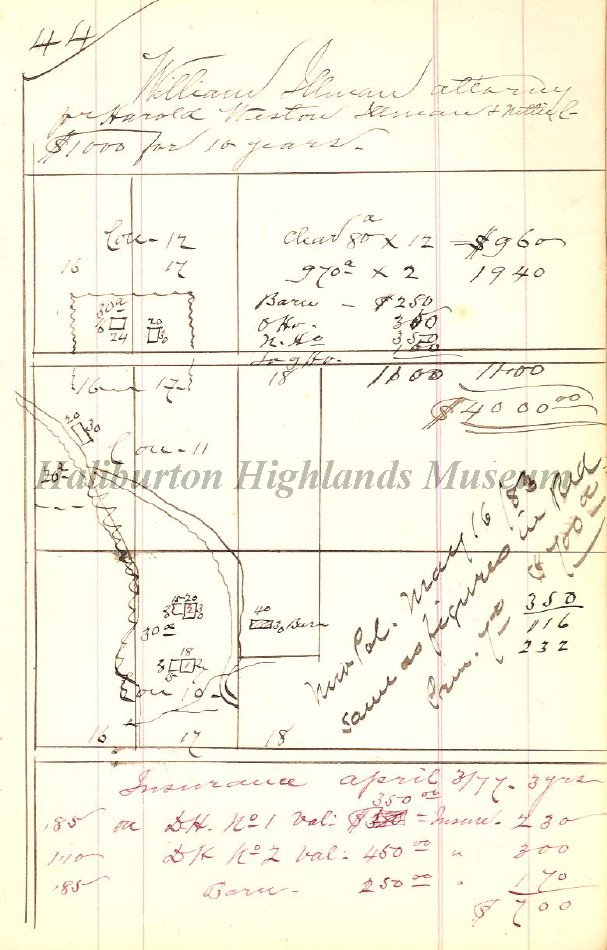 44
William Illman attorney
for Harold Weston Illman & Nettie C
$1000 for 10 years.
Con - 12
Clear 80a x 12 — $960
16 17
970a x 2 1940
Barn — $250
30a
20
30
24
O Ho.
N. Ho 350
Log Ho.
1100 1100
16 17 18
$4000.00
20
30
Con - 11
Haliburton Highlands Museum
20a
New Pol. May 16/83
same as figures in Red
Prem. 7.00 $700
350
116
232
15 20
30a
40
30 Barn
18
Con 10
16 17 18
Insurance april 3/77. 3 yrs
350.00
185 on D.H. No 1 Val. $ = Insure. 230
140 DH No 2 Val. 450.00 " 300
185 Barn. 250.00 " 170
$700